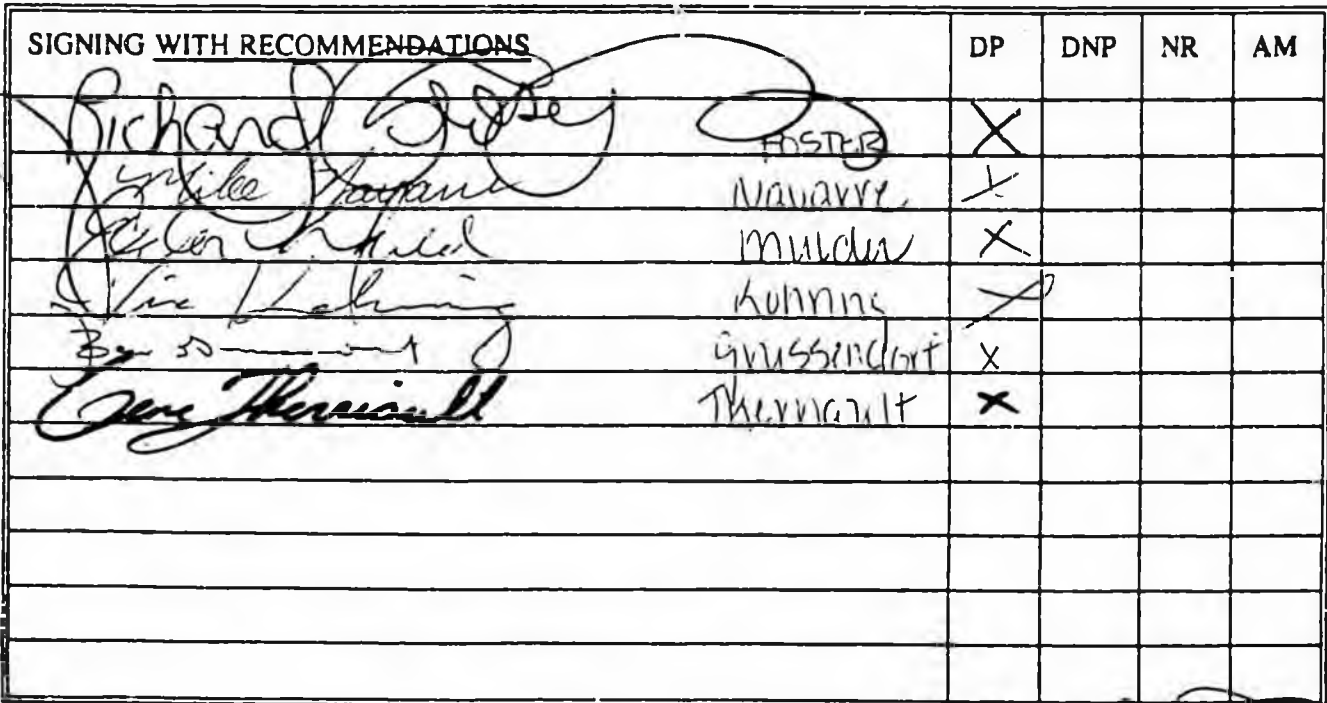 SIGNING WITH RECOMMENDATIONS DP DNP NR AM
Richard Foster FOSTER X
Mike Navarre Navarre X
Mulder X
Vic Kohring Kohring X
Grussendorf X
Gene Therriault Therriault X